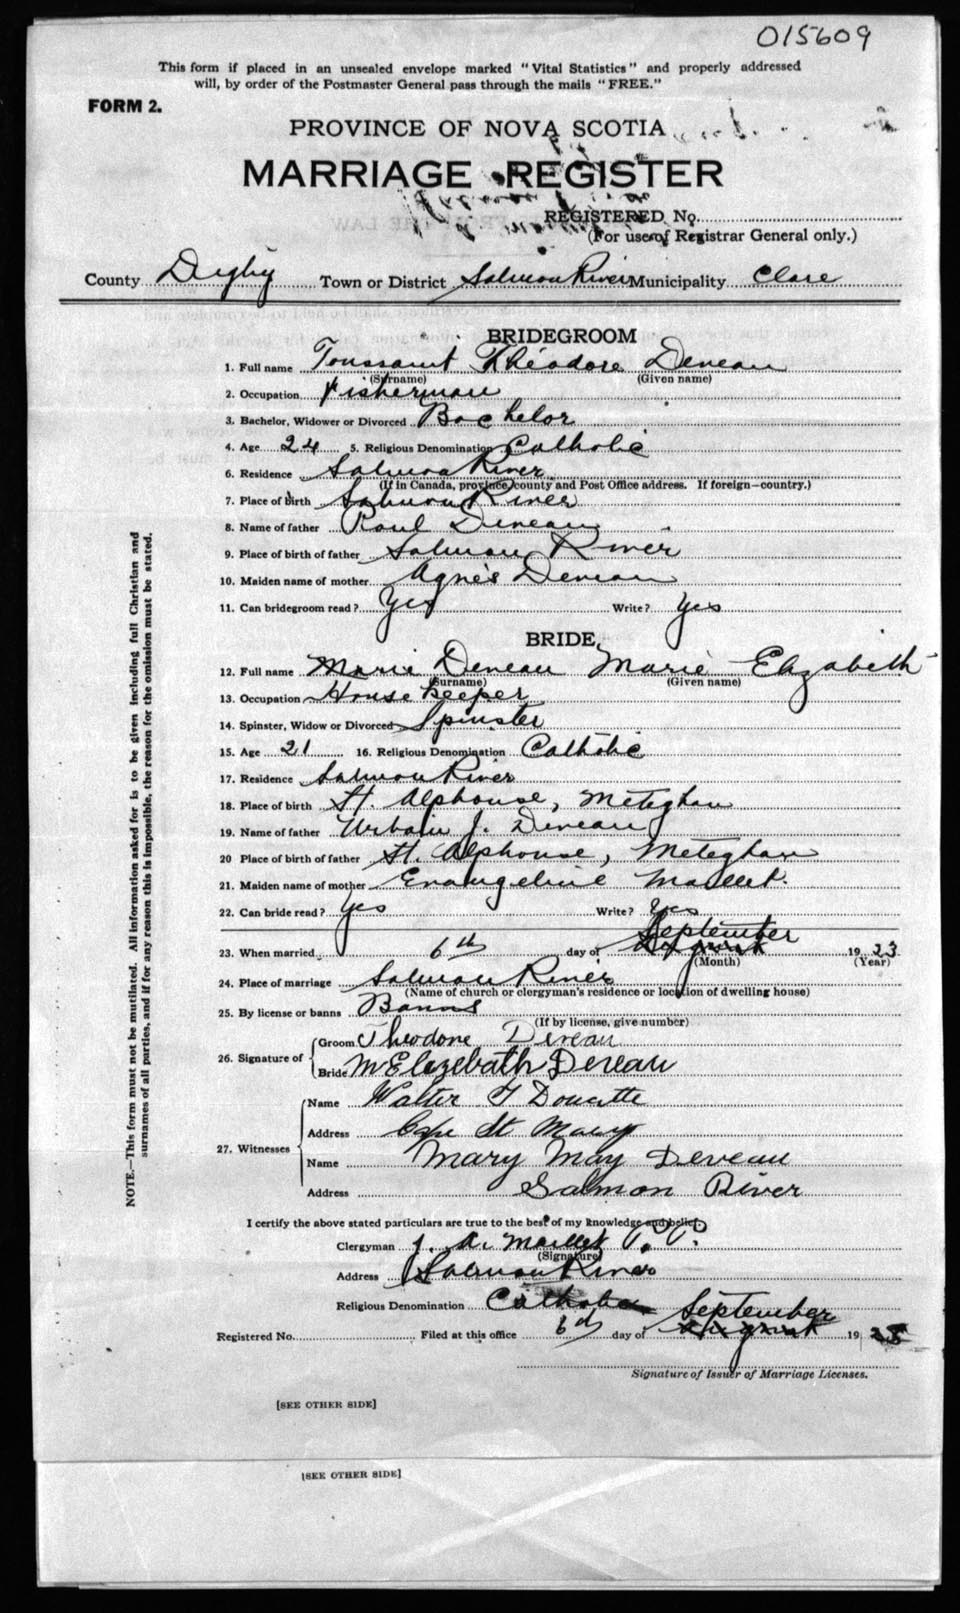 015609
This form if placed in an unsealed envelope marked "Vital Statistics" and properly addressed
will, by order of the Postmaster General pass through the mails "FREE."
FORM 2.
PROVINCE OF NOVA SCOTIA
MARRIAGE REGISTER
REGISTERED No.
(For use of Registrar General only.)
County Digby Town or District Salmon River Municipality Clare
BRIDEGROOM
1. Full name Toussaint Théodore Deveau
(Surname) (Given name)
2. Occupation Fisherman
3. Bachelor, Widower or Divorced Bachelor
4. Age 24 5. Religious Denomination Catholic
6. Residence Salmon River
(If in Canada, province, county and Post Office address. If foreign—country.)
7. Place of birth Salmon River
8. Name of father Paul Deveau
9. Place of birth of father Salmon River
10. Maiden name of mother Agnès Deveau
11. Can bridegroom read? Yes Write? Yes
BRIDE
12. Full name Marie Deveau Marie Elizabeth
(Surname) (Given name)
13. Occupation House Keeper
14. Spinster, Widow or Divorced Spinster
15. Age 21 16. Religious Denomination Catholic
17. Residence Salmon River
18. Place of birth St. Alphonse, Meteghan
19. Name of father Urbain J. Deveau
20 Place of birth of father St. Alphonse, Meteghan
21. Maiden name of mother Evangeline Maillet.
22. Can bride read? Yes Write? Yes
September
23. When married 6th day of August 1923
(Month) (Year)
24. Place of marriage Salmon River
(Name of church or clergyman's residence or location of dwelling house)
25. By license or banns Banns
(If by license, give number)
26. Signature of Groom Theodore Deveau
Bride M Elezebath Deveau
27. Witnesses Name Walter J Doucette
Address Cape St Mary
Name Mary May Deveau
Address Salmon River
I certify the above stated particulars are true to the best of my knowledge and belief.
Clergyman J. A. Maillet P.P.
(Signature)
Address Salmon River
Religious Denomination Catholic September
Registered No. Filed at this office 6th day of August 19
Signature of Issuer of Marriage Licenses.
[SEE OTHER SIDE]
[SEE OTHER SIDE]
NOTE.—This form must not be mutilated. All information asked for is to be given including full Christian and
surnames of all parties, and if for any reason this is impossible, the reason for the omission must be stated.